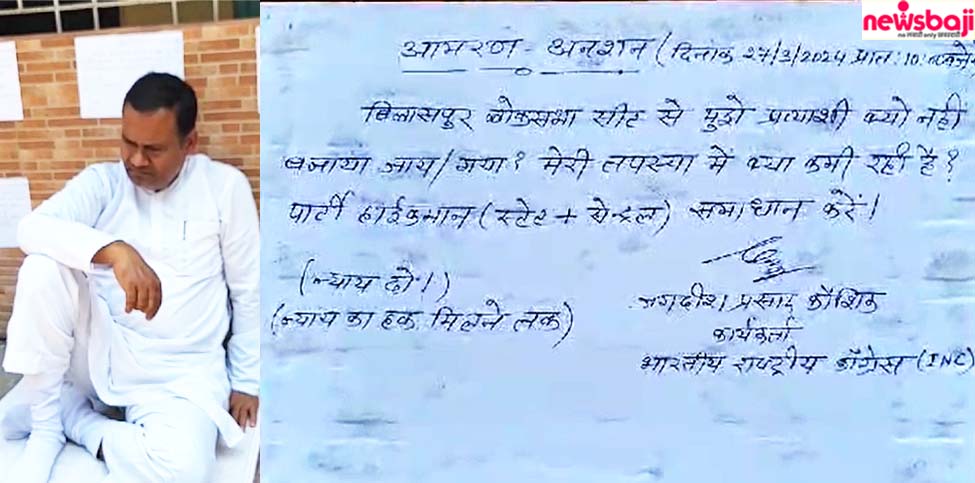 newsbaji
no लबारी only खबरबाजी
आमरण - अनशन (दिनांक 27/3/2024 प्रातः 10: बजे से
बिलासपुर लोकसभा सीट से मुझे प्रत्याशी क्यो नही
बनाया जाय/गया? मेरी तपस्या में क्या कमी रही है?
पार्टी हाईकमान (स्टेट + सेन्ट्रल) समाधान करें।
(न्याय दो।)
(न्याय का हक मिलने तक)
जगदीश प्रसाद कौशिक
कार्यकर्ता
भारतीय राष्ट्रीय काँग्रेस (INC)